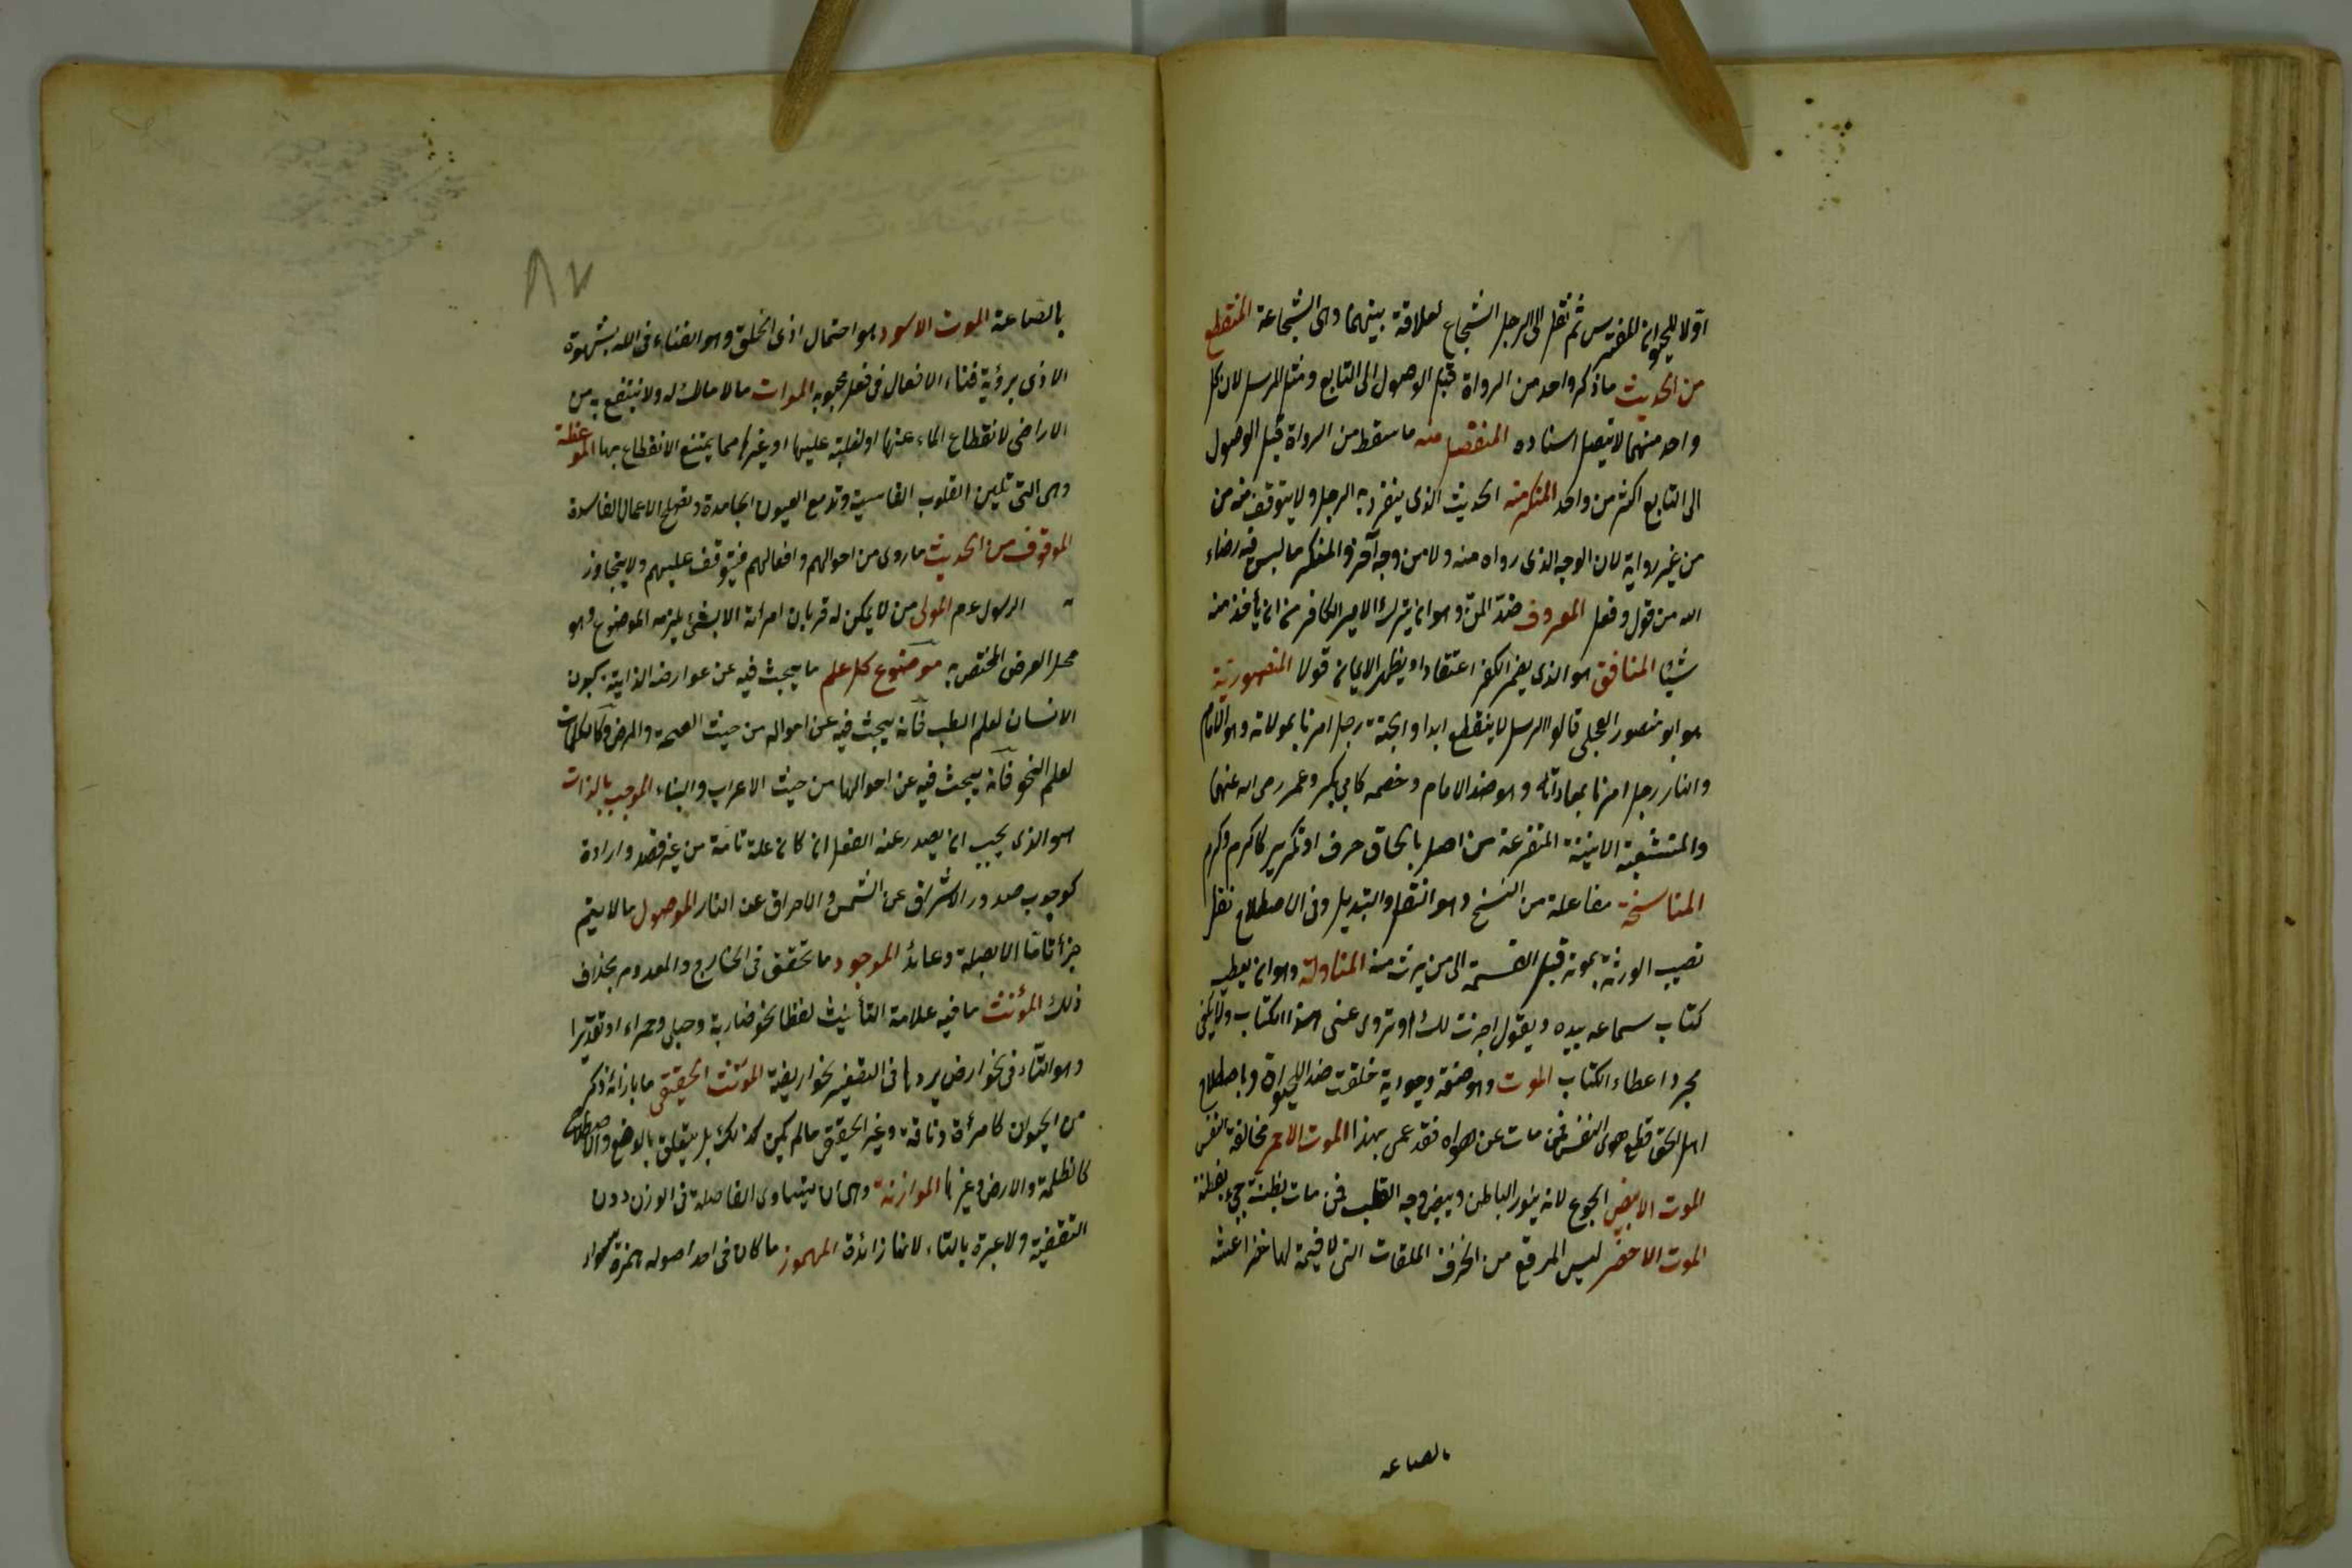 اولا للحيوان المفترس ثم نقل الى الرجل الشجاع لعلاقة بينهما وهى الشجاعة المنقطع
من الحديث ما ذكر واحد من الرواة قبل الوصول الى التابع ومثل المرسل لان كل
واحد منهما لا يتصل اسناده المنفصل منه ما سقط من الرواة قبل الوصول
الى التابع اكثر من واحد المنكر منه الحديث الذى ينفرد به الرجل ولا يتوقف منه من
من غير رواية لان الوجه الذى رواه منه ولا من وجه آخر والمنكر ما ليس فيه رضاء
الله من قول وفعل المعروف ضد المن وهو ان يترك الامير الكافر من ان يأخذ منه
شيئا المنافق هو الذى يضمر الكفر اعتقادا ويظهر الايمان قولا المنصورية
هو ابو منصور العجلى قالوا الرسل لا ينقطع ابدا والجنة رجل امرنا بموالاته وهو الامام
والنار رجل امرنا بمعاداته وهو ضد الامام وخصمه كابى بكر وعمر رضى الله عنهما
والمتشعبة الابنية المتفرعة من اصل بالحاق حرف او تكرير كاكرم وكرم
المناسخة مفاعلة من النسخ وهو النقل والتبديل وفى الاصطلاح نقل
نصيب الورثة بموته قبل القسمة الى من يرث منه المناولة وهو ان يعطيه
كتاب سماعه بيده ويقول اجزت لك ان تروى عنى هذا الكتاب ولا يكفى
مجرد اعطاء الكتاب الموت وهو صفة وجودية خلقت ضد الحيوة وباصطلاح
اهل الحق قطع هوى النفس فمن مات عن هواه فقد عمى بهذا الموت الاحمر مخالفة النفس
الموت الابيض الجوع لانه ينور الباطن ويبيض وجه القلب فمن مات بطنته حيى بفطنة
الموت الاخضر لبس المرقع من الخرف الملقات التى لا قيمة لها خضر اعيشه
بالصاعه
٨٧
بالصاعة الموت الاسود هو احتمال اذى الخلق وهو الفناء فى الله بشهوة
الاذى برؤية فناء الافعال فى فعل محبوبه الموات ما لا مالك له ولا ينتفع به من
الاراضى لانقطاع الماء عنها او لغلبته عليها او غيرها مما يمنع الانقطاع بها الموعظة
وهى التى تلين القلوب القاسية وتدمع العيون الجامدة وتصلح الاعمال الفاسدة
الموقوف من الحديث ما روى من احوالهم وافعالهم فيتوقف عليهم ولا يتجاوز
به الرسول عم المولى من لا يمكن له قربان امرأته الا بشئ يلزمه الموضوع وهو
محل العرض المختص به موضوع كل علم ما يبحث فيه عن عوارضه الذاتية كبدن
الانسان لعلم الطب فانه يبحث فيه عن احواله من حيث الصحة والمرض وكالكلمات
لعلم النحو فانه يبحث فيه عن احوالها من حيث الاعراب والبناء الموجب بالذات
هو الذى يجب ان يصدر عنه الفعل ان كان علة تامة من غير قصد وارادة
كوجوب صدور الاشراق عن الشمس والاحراق عن النار الموصول ما لا يتم
جزأ تاما الا بصلة وعائد الموجود ما تحقق فى الخارج والمعدوم بخلاف
ذلك المؤنث ما فيه علامة التأنيث لفظا نحو ضاربة وحبلى وحمراء او تقديرا
وهو التاء فى نحو ارض يردها فى التصغير نحو اريضة المؤنث الحقيقى ما بازائه ذكر
من الحيوان كامرأة وناقة وغير الحقيقى ما لم يكن كذلك بل يتعلق بالوضع والاصطلاح
كالظلمة والارض وغيرها الموازنة وهى ان يتساوى الفاصلة فى الوزن دون
التقفية ولا عبرة بالتاء لانها زائدة المهموز ما كان فى احد اصوله همزة سواء